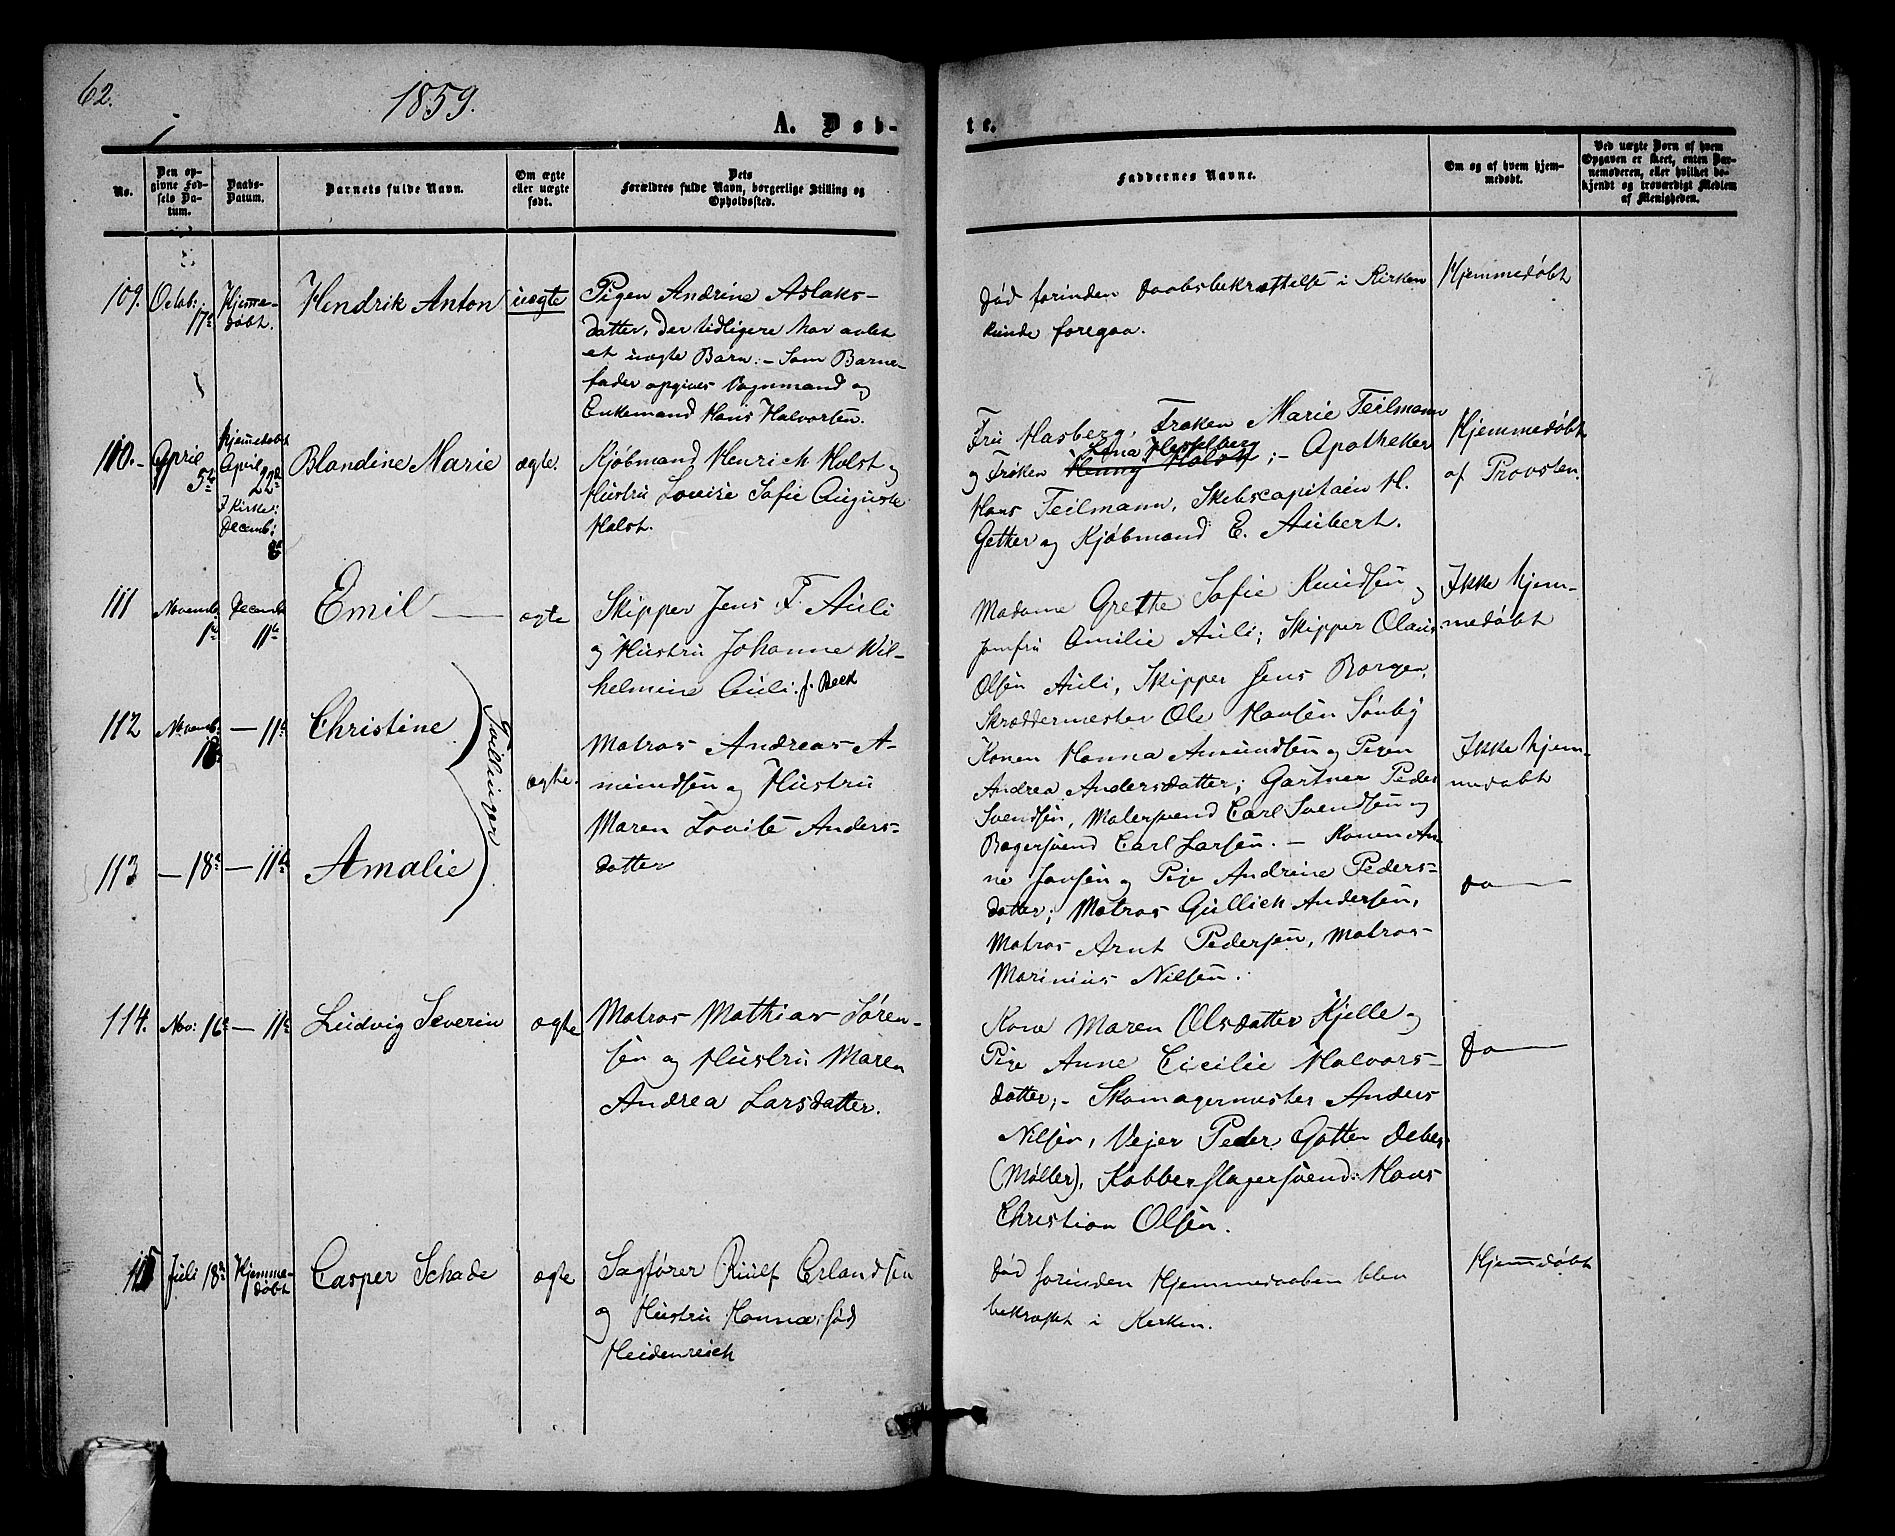 62.
1859.
A. Døb-
te.
No.
Den op-
givne Fød-
sels Da-
tum.
Daabs-
Datum.
Barnets fulde Navn.
Om ægte
eller uægte
født.
Dets
Forældres fulde Navn, borgerlige Stilling og
Opholdssted.
Faddernes Navne.
Om og af hvem hjem-
medøbt.
Ved uægte Børn af hvem
Opgaven er skeet, enten Bar-
nemoderen, eller hvilket be-
kjendt og troværdigt Medlem
af Menigheden.
109. Octob: 17de
Hjemme-
døbt.
Hendrik Anton
uægte
Pigen Andrine Aslaks-
datter, der tidligere har avlet
et uægte Barn: - Som Barne-
fader opgives Vognmand og
Enkemand Hans Halvorsen.
Død forinden Daabsbekræftelse i Kirken
kunde foregaa.
Hjemmedøbt
110. - April 5te
Hjemmedøbt
April 22de
I Kirke:
Decemb:
8de
Blandine Marie
ægte.
Kjøbmand Henrich Holst og
Hustru Lovise Sofie Auguste
Holst.
Fru Hasberg, Frøken Marie Teilmann
og Frøken Henny Holst Lena Hesselberg; - Apotheker
Hans Teilmann, Skibscapitain H.
Getker og Kjøbmand E. Aubert.
Hjemmedøbt
af Provsten.
111 Novemb: 1ste
Decemb: 11te
Emil
ægte
Skipper Jens F Auli
og Hustru Johanne Wil-
helmine Auli. f. Beck
Madame Grethe Sofie Knudsen og
Jomfru Amilie Auli; Skipper Olaus
Olsen Auli, Skipper Jens Borgen,
Skræddermester Ole Hansen Sønby
Ikke hjem-
medøbt
112 Novemb: 18de
- 11te
Christine
Tvillinger
ægte.
Matros Andreas A-
mundsen og Hustru
Maren Lovise Anders-
datter
Konen Hanna Amundsen og Pigen
Andrea Andersdatter; Gartner Peder
Svendsen, Malersvend Carl Svendsen og
Bagersvend Carl Larsen. - Konen An-
ne Jansen og Pige Andrine Peders-
datter; Matros Gullich Andersen,
Matros Arnt Pedersen, Matros
Marinius Nilsen.
Ikke hjem-
medøbt
113 - 18de - 11te
Amalie
Do
114. Nov: 16de - 11te
Ludvig Severin
ægte
Matros Mathias Søren-
sen og Hustru Maren
Andrea Larsdatter.
Kone Maren Olsdatter Kjelle og
Pige Anne Cicilie Halvors-
datter; - Skomagermester Anders
Nilsen, Vejer Peder Gotten Deber
(Møller), Kobberslagersvend: Hans
Christian Olsen.
Do
115 Juli 18de
Hjemme-
døbt
Casper Schade
ægte
Sagfører Riulf Erlandsen
og Hustru Hanna, fød
Heidenreich
Død forinden Hjemmedaaben blev
bekræftet i Kirken.
Hjemdøbt